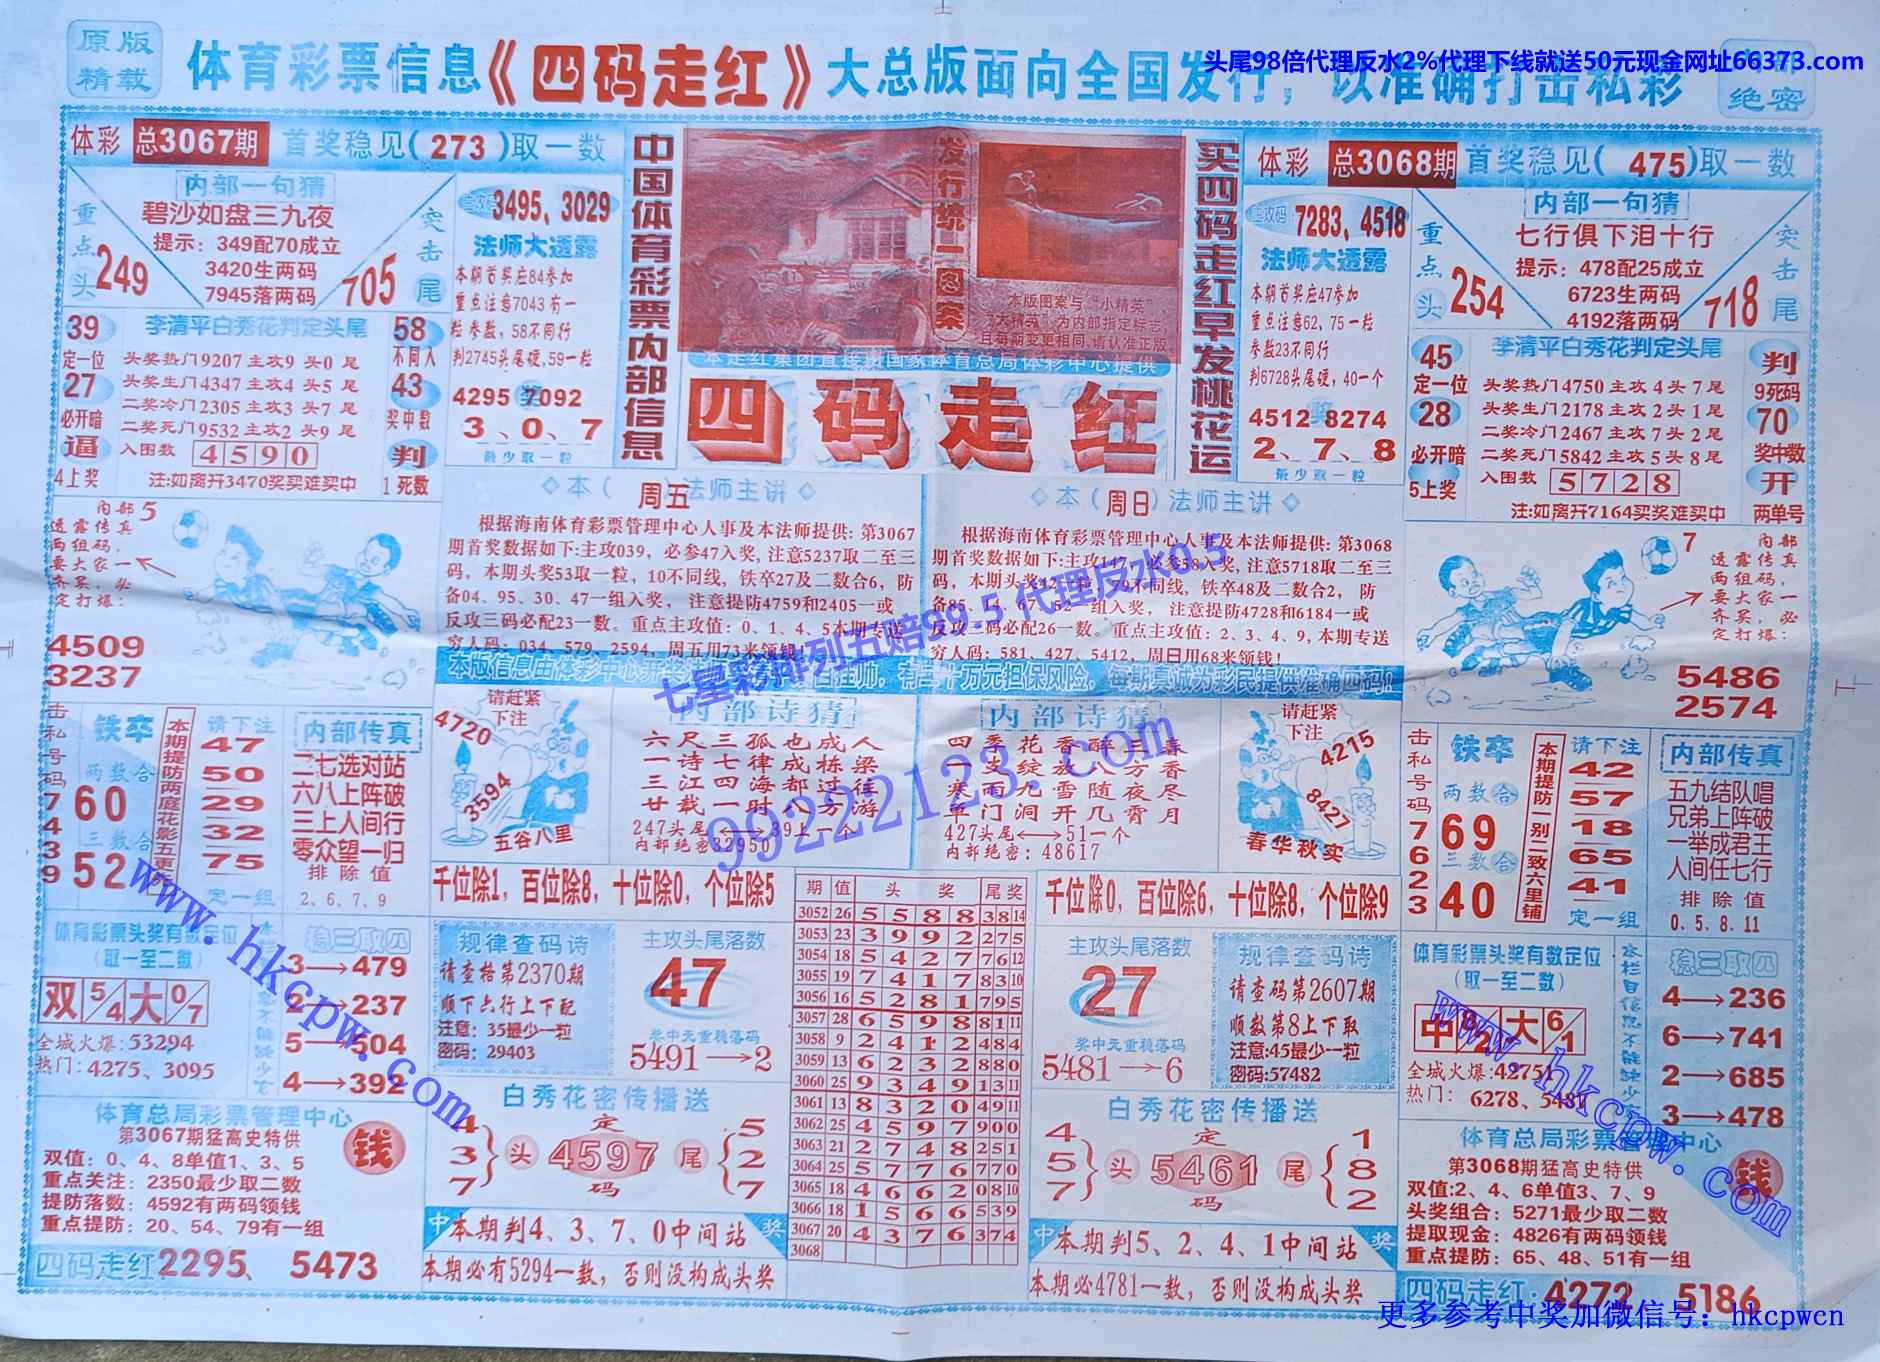 原版
精载
体育彩票信息《四码走红》大总版面向全国发行，以准确打击私彩
绝密
头尾98倍代理反水2%代理下线就送50元现金网址66373.com
体彩 总3067期 首奖稳见(273)取一数
内部一句猜
碧沙如盘三九夜
提示：349配70成立
3420生两码
7945落两码
重点头 249
突击尾 705
3495、3029
法师大透露
本期首奖应84参加
重点注意7043有一
粒参数，58不同行
判2745头尾硬，59一粒
4295 7092
3、0、7
最少取一粒
39 定一位
27 必开暗
逼 4上奖
李清平白秀花判定头尾
头奖热门9207主攻9头0尾
头奖生门4347主攻4头5尾
二奖冷门2305主攻3头7尾
二奖死门9532主攻2头9尾
入围数 4590
注:如离开3470奖买难买中
58 不同入
43 奖中数
判 1死数
中国体育彩票内部信息
发行统一图案
本版图案与“小精英”
“大精英”为内部指定标志，
且每期变更相同，请认准正版
本走红集团直接由国家体育总局体彩中心提供
四码走红
买四码走红早发桃花运
体彩 总3068期 首奖稳见(475)取一数
内部一句猜
七行俱下泪十行
提示：478配25成立
6723生两码
4192落两码
重点头 254
突击尾 718
主攻码 7283、4518
法师大透露
本期首奖应47参加
重点注意62、75一粒
参数23不同行
判6728头尾硬，40一个
4512 8274
2、7、8
最少取一粒
45 定一位
28 必开暗
5上奖
李清平白秀花判定头尾
头奖热门4750主攻4头7尾
头奖生门2178主攻2头1尾
二奖冷门2467主攻7头2尾
二奖死门5842主攻5头8尾
入围数 5728
注:如离开7164买奖难买中
判 9死码
70 奖中数
开 两单号
内部
透露传真
两组码，
要大家一
齐买，必
定打爆：
5
4509
3237
◇本（周五）法师主讲◇
根据海南体育彩票管理中心人事及本法师提供：第3067
期首奖数据如下:主攻039，必参47入奖，注意5237取二至三
码，本期头奖53取一粒，10不同线，铁卒27及二数合6，防
备04、95、30、47一组入奖， 注意提防4759和2405一或
反攻三码必配23一数。重点主攻值：0、1、4、5本期专送
穷人码：034、579、2594，周五用73来领钱！
◇本（周日）法师主讲◇
根据海南体育彩票管理中心人事及本法师提供：第3068
期首奖数据如下:主攻147，必参58入奖，注意5718取二至三
码，本期头奖42一粒，79不同线，铁卒48及二数合2，防
备85、14、67、52一组入奖， 注意提防4728和6184一或
反攻三码必配26一数。重点主攻值：2、3、4、9，本期专送
穷人码：581、427、5412，周日用68来领钱！
内部
透露传真
两组码，
要大家一
齐买，必
定打爆：
7
5486
2574
七星彩排列五赔99.5代理反水0.5
99222123.com
击私号码 7439
铁卒
两数合
60
三数合
52
请下注
47
50
29
32
75
定一组
内部传真
二七选对站
六八上阵破
三上人间行
零众望一归
排除值
2、6、7、9
请赶紧
下注
4720
3594
五谷八里
内部诗猜
六尺三孤也成人
一诗七律成栋梁
三江四海都过往
廿载一时八方游
247头尾⟷39上一个
内部绝密32950
内部诗猜
四季花香醉三春
一支绽放八方香
寒雨九雪随夜尽
单门洞开几霄月
427头尾⟷51一个
内部绝密：48617
请赶紧
下注
4215
8427
春华秋实
击私号码 7623
铁卒
两数合
69
三数合
40
本期提防一别二致六里铺
请下注
42
57
18
65
41
定一组
内部传真
五九结队唱
兄弟上阵破
一举成君王
人间任七行
排除值
0、5、8、11
千位除1，百位除8，十位除0，个位除5
千位除0，百位除6，十位除8，个位除9
体育彩票头奖有数定位
（取一至二数）
双 5/4 大 0/7
全城火爆:53294
热门:4275、3095
稳三取四
3→479
2→237
5→504
4→392
规律查码诗
请查格第2370期
顺下六行上下配
注意：35最少一粒
密码：29403
主攻头尾落数
47
奖中无重税落码
5491→2
期 值 头奖 尾奖
3052 26 5 5 8 8 3 8 14
3053 23 3 9 9 2 2 7 5
3054 18 5 4 2 7 7 6 12
3055 19 7 4 1 7 8 3 10
3056 16 5 2 8 1 7 9 5
3057 28 6 5 9 8 8 1 11
3058 9 2 4 1 2 4 8 4
3059 13 6 2 3 2 8 8 0
3060 25 9 3 4 9 1 3 11
3061 13 8 3 2 0 4 9 11
3062 25 4 5 9 7 9 0 0
3063 21 2 7 4 8 2 5 1
3064 25 5 7 7 6 7 7 0
3065 18 4 6 6 2 0 8 10
3066 18 1 5 6 6 5 3 9
3067 20 4 3 7 6 3 7 4
3068
主攻头尾落数
27
奖中无重税落码
5481→6
规律查码诗
请查码第2607期
顺数第8上下取
注意:45最少一粒
密码:57482
体育彩票头奖有数定位
（取一至二数）
中 大 6/1
全城火爆:42751
热门：6278、5481
本栏目信息不能缺少
稳三取四
4→236
6→741
2→685
3→478
www.hkcpw.com
www.hkcpw.com
体育总局彩票管理中心
第3067期猛高史特供
双值：0、4、8单值1、3、5
重点关注：2350最少取二数
提防落数：4592有两码领钱
重点提防：20、54、79有一组
钱
四码走红 2295、 5473
白秀花密传播送
4
3
7
头 定 4597 码 尾
5
2
7
中 本期判4、3、7、0中间站 奖
本期必有5294一数，否则没构成头奖
白秀花密传播送
4
5
7
头 定 5461 码 尾
1
8
2
中 本期判5、2、4、1中间站 奖
本期必4781一数，否则没构成头奖
体育总局彩票管理中心
第3068期猛高史特供
双值:2、4、6单值3、7、9
头奖组合：5271最少取二数
提取现金：4826有两码领钱
重点提防：65、48、51有一组
钱
四码走红：4272 5186
更多参考中奖加微信号：hkcpwcn